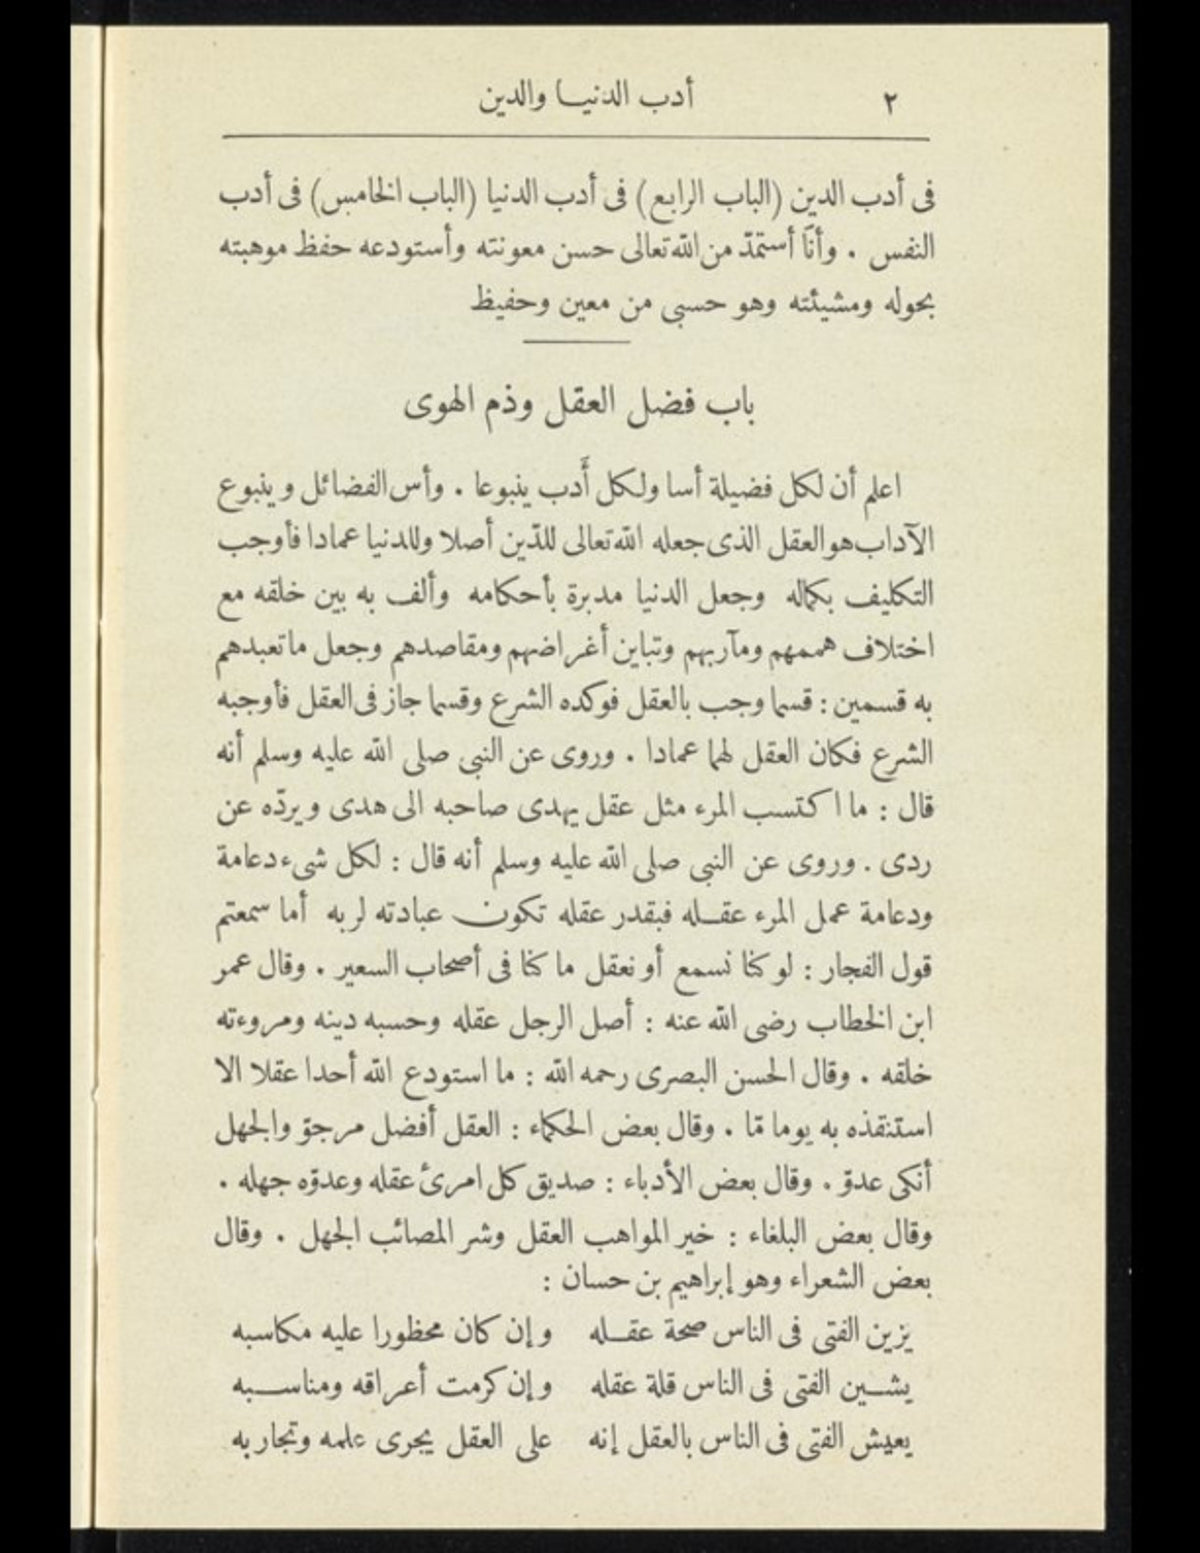 ٢
أدب الدنيا والدين
فى أدب الدين (الباب الرابع) فى أدب الدنيا (الباب الخامس) فى أدب
النفس . وأنا أستمدّ من الله تعالى حسن معونته وأستودعه حفظ موهبته
بحوله ومشيئته وهو حسبى من معين وحفيظ
باب فضل العقل وذم الهوى
اعلم أن لكل فضيلة أسا ولكل أدب ينبوعا . وأس الفضائل وينبوع
الآداب هو العقل الذى جعله الله تعالى للدّين أصلا وللدنيا عمادا فأوجب
التكليف بكماله وجعل الدنيا مدبرة بأحكامه وألف به بين خلقه مع
اختلاف هممهم ومآربهم وتباين أغراضهم ومقاصدهم وجعل ما تعبدهم
به قسمين : قسما وجب بالعقل فوكده الشرع وقسما جاز فى العقل فأوجبه
الشرع فكان العقل لهما عمادا . وروى عن النبى صلى الله عليه وسلم أنه
قال : ما اكتسب المرء مثل عقل يهدى صاحبه الى هدى ويردّه عن
ردى . وروى عن النبى صلى الله عليه وسلم أنه قال : لكل شىء دعامة
ودعامة عمل المرء عقله فبقدر عقله تكون عبادته لربه أما سمعتم
قول الفجار : لو كنا نسمع أو نعقل ما كنا فى أصحاب السعير . وقال عمر
ابن الخطاب رضى الله عنه : أصل الرجل عقله وحسبه دينه ومروءته
خلقه . وقال الحسن البصرى رحمه الله : ما استودع الله أحدا عقلا الا
استنقذه به يوما مّا . وقال بعض الحكماء : العقل أفضل مرجوّ والجهل
أنكى عدوّ . وقال بعض الأدباء : صديق كل امرئ عقله وعدوّه جهله .
وقال بعض البلغاء : خير المواهب العقل وشر المصائب الجهل . وقال
بعض الشعراء وهو إبراهيم بن حسان :
يزين الفتى فى الناس صحة عقله وإن كان محظورا عليه مكاسبه
يشين الفتى فى الناس قلة عقله وإن كرمت أعراقه ومناسبه
يعيش الفتى فى الناس بالعقل إنه على العقل يجرى علمه وتجاربه